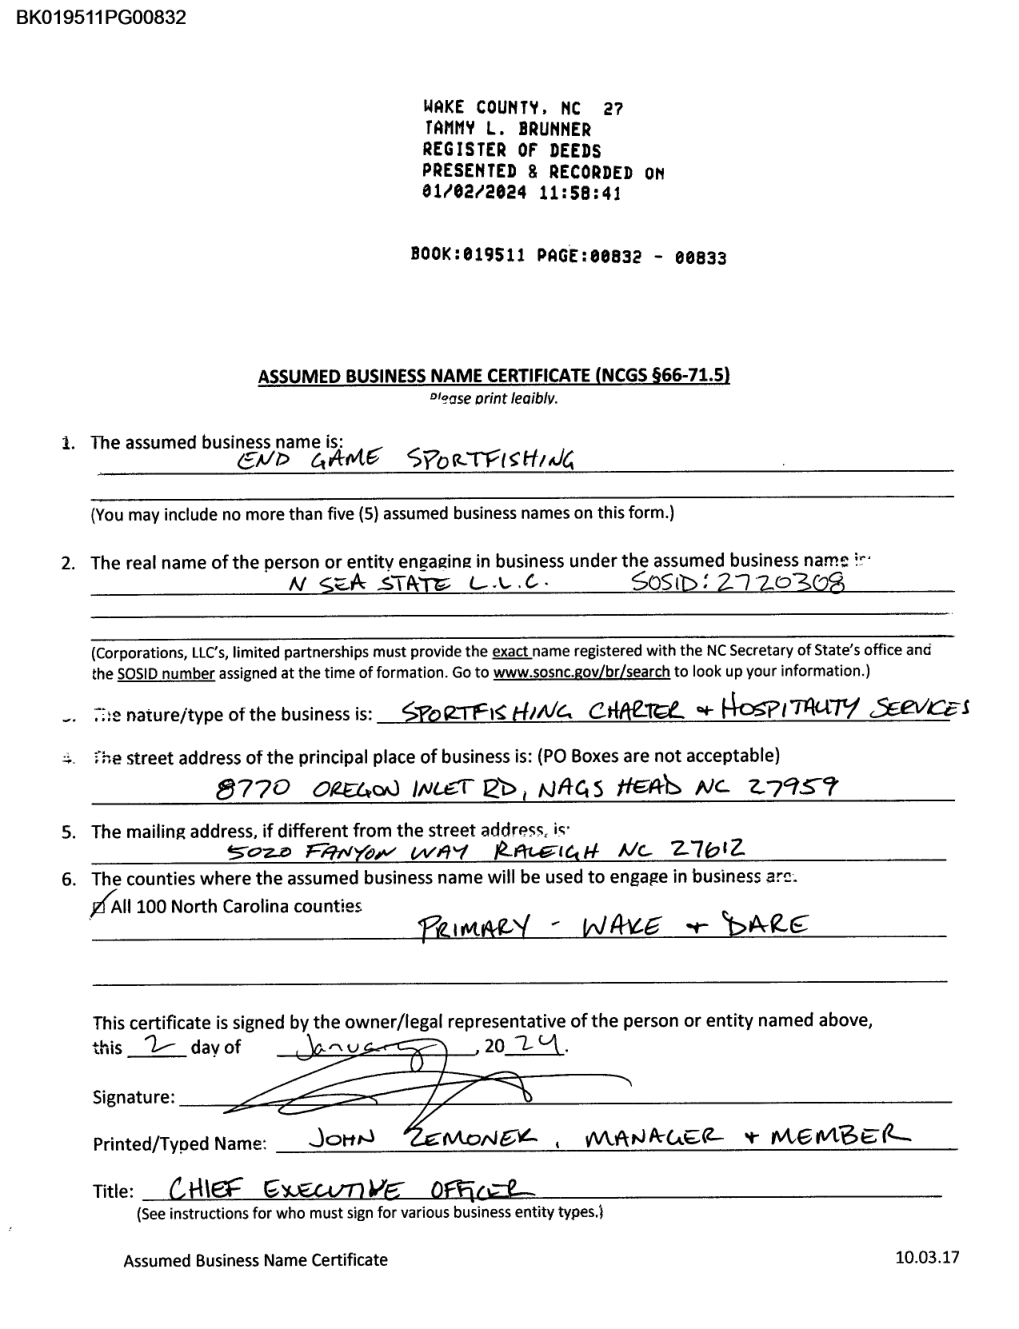 BK019511PG00832
WAKE COUNTY, NC 27
TAMMY L. BRUNNER
REGISTER OF DEEDS
PRESENTED & RECORDED ON
01/02/2024 11:58:41
BOOK:019511 PAGE:00832 - 00833
ASSUMED BUSINESS NAME CERTIFICATE (NCGS §66-71.5)
Please print legibly.
1. The assumed business name is:
END GAME SPORTFISHING
(You may include no more than five (5) assumed business names on this form.)
2. The real name of the person or entity engaging in business under the assumed business name is:
N SEA STATE L.L.C. SOSID: 2720308
(Corporations, LLC's, limited partnerships must provide the exact name registered with the NC Secretary of State's office and
the SOSID number assigned at the time of formation. Go to www.sosnc.gov/br/search to look up your information.)
3. The nature/type of the business is: SPORTFISHING CHARTER + HOSPITALITY SERVICES
4. The street address of the principal place of business is: (PO Boxes are not acceptable)
8770 OREGON INLET RD, NAGS HEAD NC 27959
5. The mailing address, if different from the street address, is:
5020 FANYON WAY RALEIGH NC 27612
6. The counties where the assumed business name will be used to engage in business are:
All 100 North Carolina counties
PRIMARY - WAKE + DARE
This certificate is signed by the owner/legal representative of the person or entity named above,
this 2 day of January, 2024.
Signature:
Printed/Typed Name: JOHN ZEMONEK, MANAGER + MEMBER
Title: CHIEF EXECUTIVE OFFICER
(See instructions for who must sign for various business entity types.)
Assumed Business Name Certificate 10.03.17